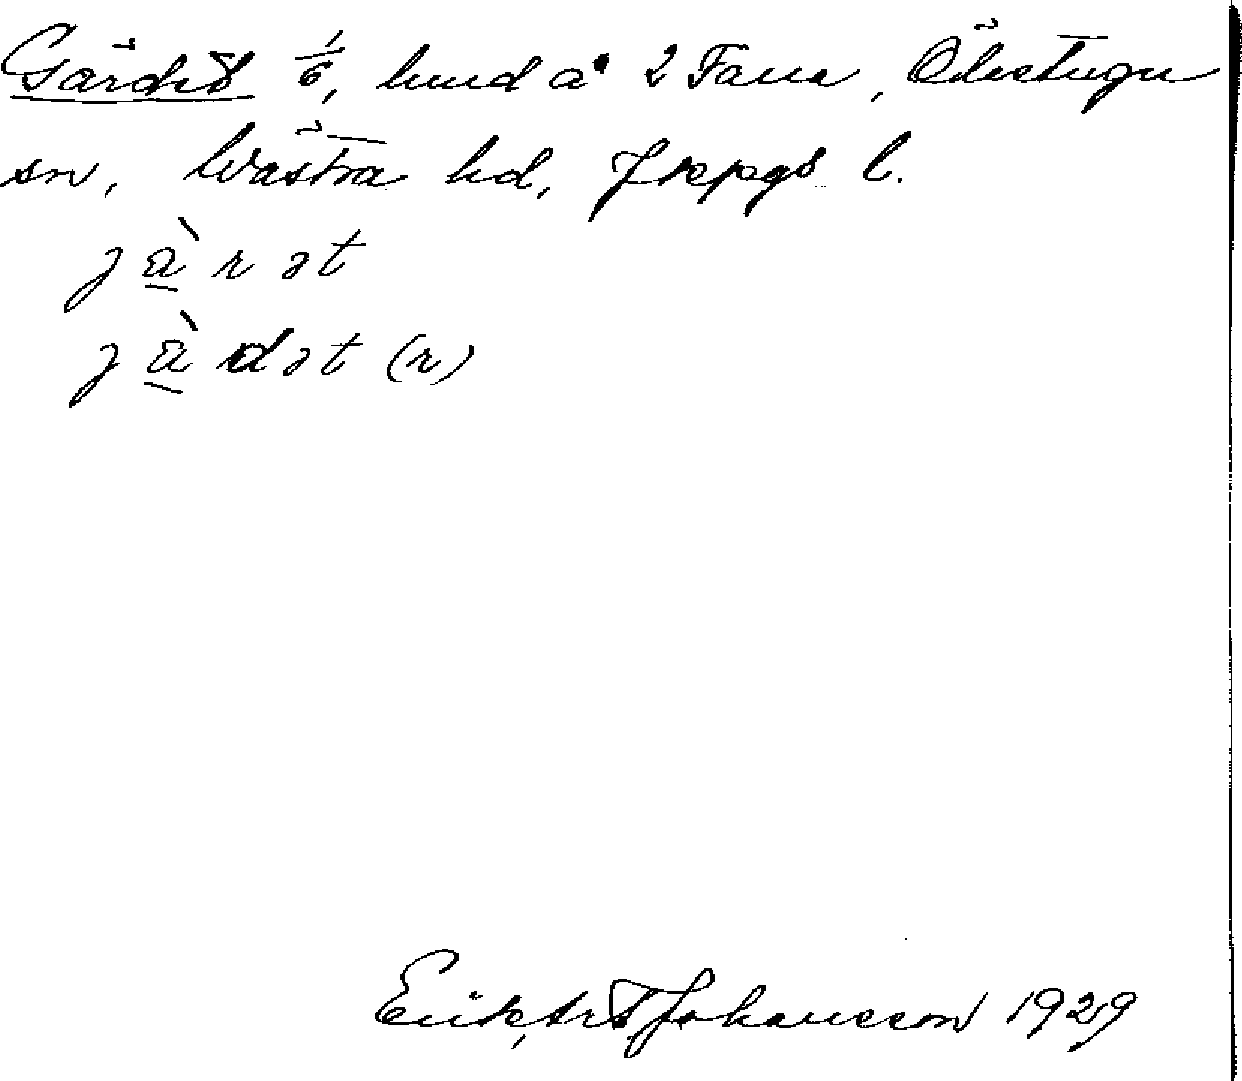 Gärdet 1/6, lund å 2 Fana, Ölmstugu
sn, Västra hd, Jkpgs l.
jä̀rət
jä̀dət (r)
Johansson 1929